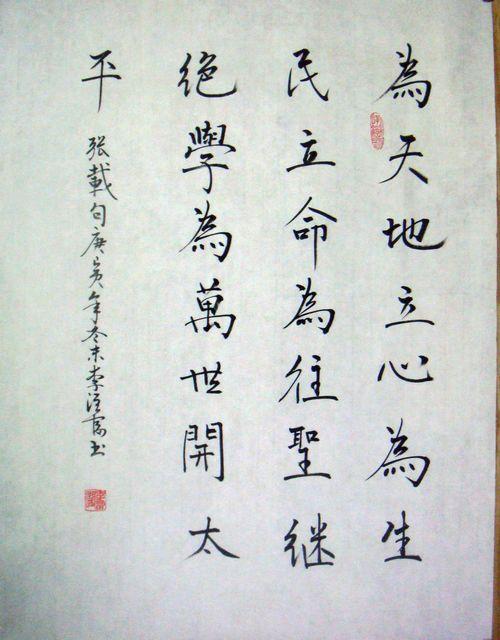 為天地立心為生
民立命為往聖継
絶學為萬世開太
平
張載句庚寅年冬末李㳕富书